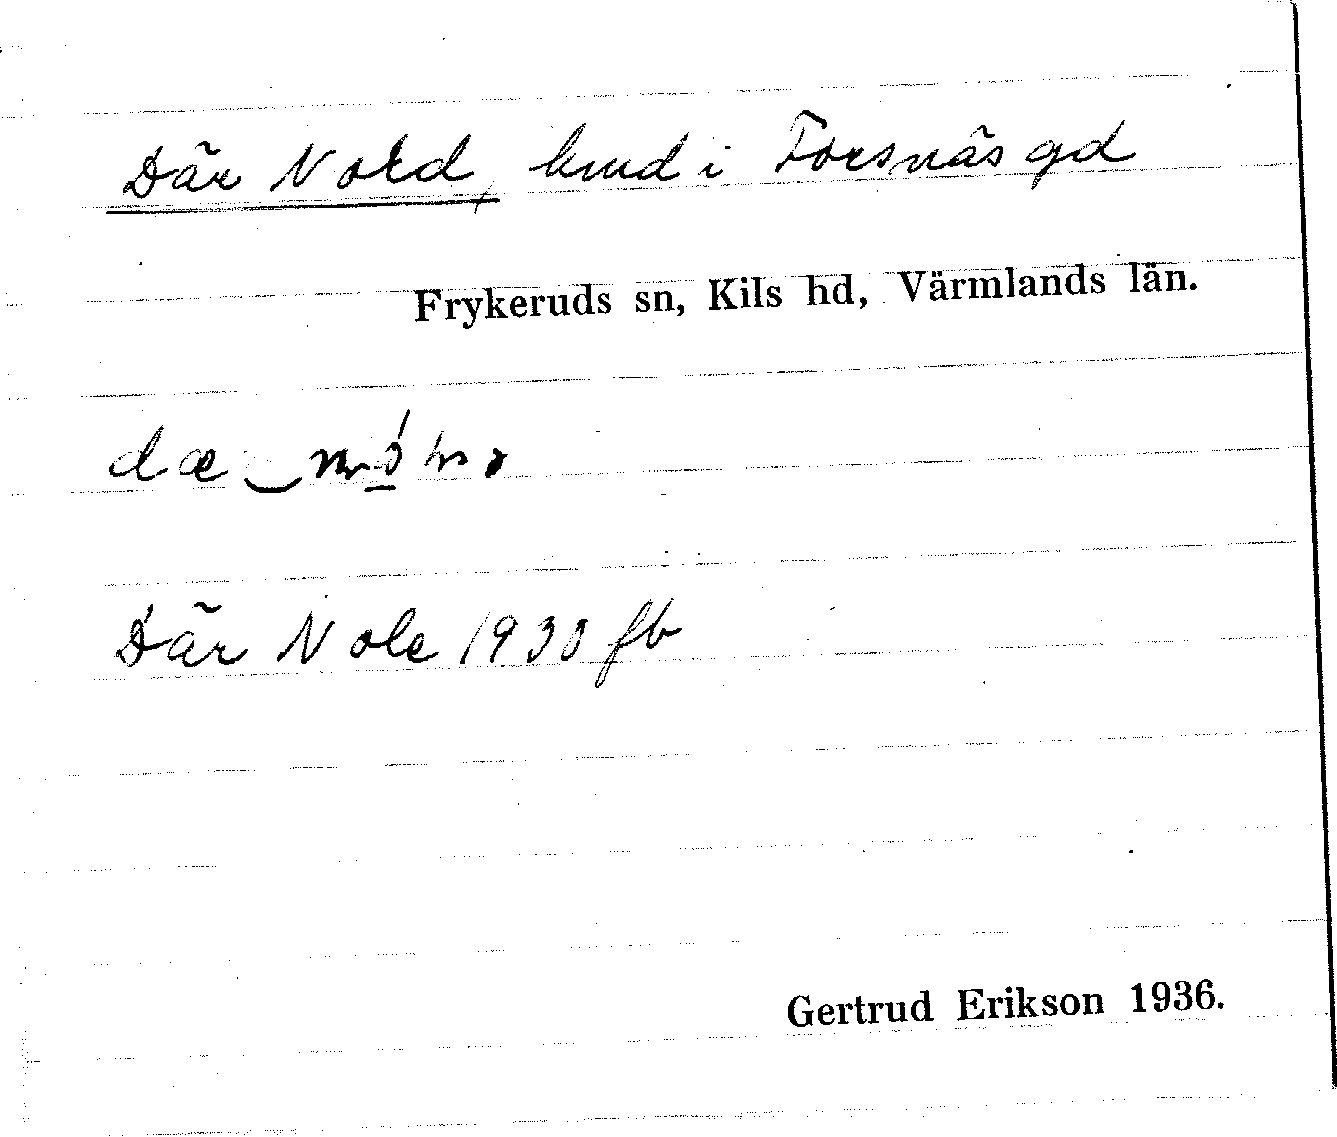 Där Nord, hmd i Forsnäs gd
Frykeruds sn, Kils hd, Värmlands län.
dæ
Där Nole 1930 fb
Gertrud Erikson 1936.